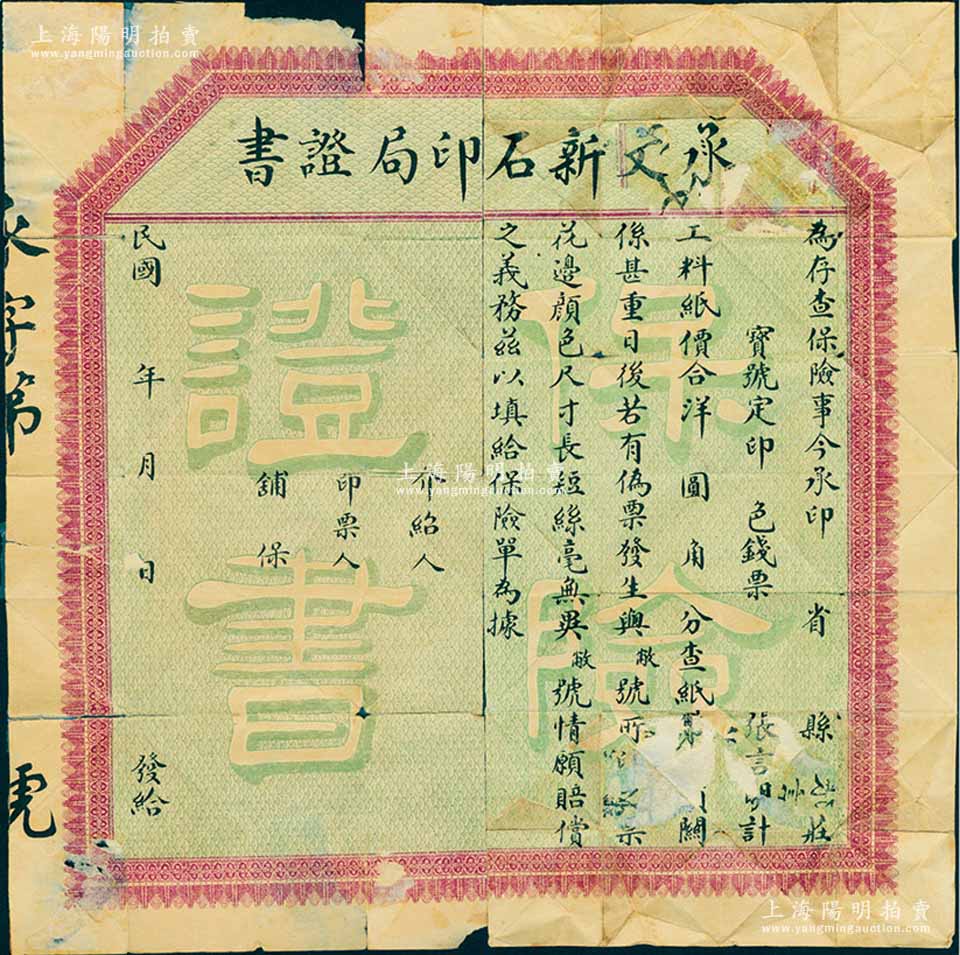 上海陽明拍賣
www.yangmingauction.com
承文新石印局證書
為存查保險事今承印 省 縣 莊
寶號定印 色錢票 張言明計
工料紙價合洋 圓 角 分查紙幣 關
係甚重日後若有偽票發生與敝號所印 票
花邊顏色尺寸長短絲毫無異敝號情願賠償
之義務茲以填給保險單為據
介紹人
印票人
舖保
民國 年 月 日 發給
保險
證書
字第 號
上海陽明拍賣
www.yangmingauction.com
上海陽明拍賣
www.yangmingauction.com